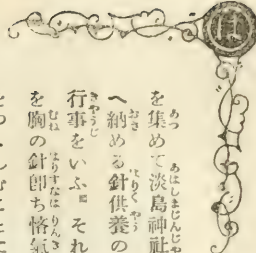 を集めて淡島神社
へ納める針供養の
行事をいふ。それ
を胸の針即ち悋気